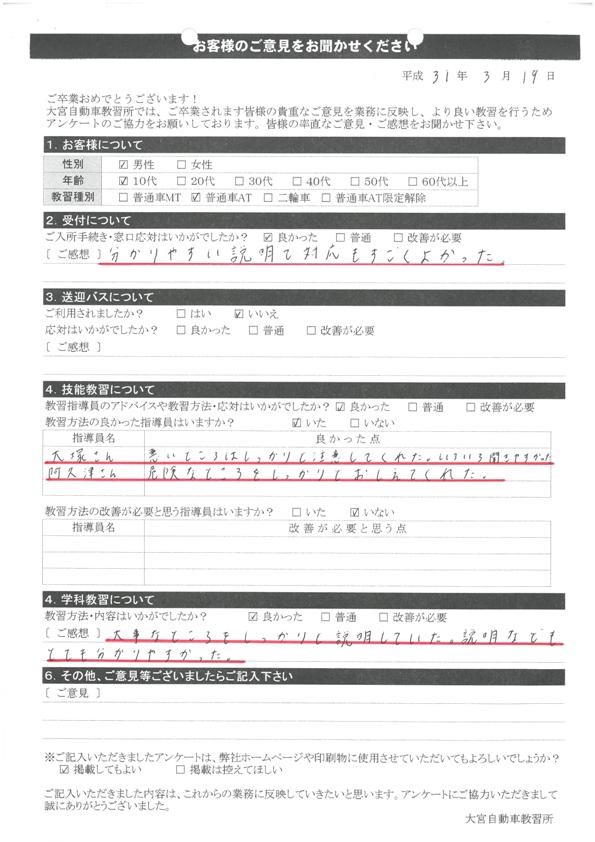 お客様のご意見をお聞かせください
平成 31 年 3 月 19 日
ご卒業おめでとうございます！
大宮自動車教習所では、ご卒業されます皆様の貴重なご意見を業務に反映し、より良い教習を行うため
アンケートのご協力をお願いしております。皆様の率直なご意見・ご感想をお聞かせ下さい。
1. お客様について
性別 ☑ 男性 □ 女性
年齢 ☑ 10代 □ 20代 □ 30代 □ 40代 □ 50代 □ 60代以上
教習種別 □ 普通車MT ☑ 普通車AT □ 二輪車 □ 普通車AT限定解除
2. 受付について
ご入所手続き・窓口応対はいかがでしたか？ ☑ 良かった □ 普通 □ 改善が必要
〔 ご感想 〕 分かりやすい説明で対応もすごくよかった。
3. 送迎バスについて
ご利用されましたか？ □ はい ☑ いいえ
応対はいかがでしたか？ □ 良かった □ 普通 □ 改善が必要
〔 ご感想 〕
4. 技能教習について
教習指導員のアドバイスや教習方法・応対はいかがでしたか？ ☑ 良かった □ 普通 □ 改善が必要
教習方法の良かった指導員はいますか？ ☑ いた □ いない
指導員名 良かった点
大塚さん 悪いところはしっかりと注意してくれた。いろいろ聞きやすかった
阿久津さん 危険なところをしっかりとおしえてくれた。
教習方法の改善が必要と思う指導員はいますか？ □ いた ☑ いない
指導員名 改善が必要と思う点
4. 学科教習について
教習方法・内容はいかがでしたか？ ☑ 良かった □ 普通 □ 改善が必要
〔 ご感想 〕 大事なところをしっかりと説明していた。説明なども
とても分かりやすかった。
6. その他、ご意見等ございましたらご記入下さい
〔 ご意見 〕
※ご記入いただきましたアンケートは、弊社ホームページや印刷物に使用させていただいてもよろしいでしょうか？
☑ 掲載してもよい □ 掲載は控えてほしい
ご記入いただきました内容は、これからの業務に反映していきたいと思います。アンケートにご協力いただきまして
誠にありがとうございました。
大宮自動車教習所